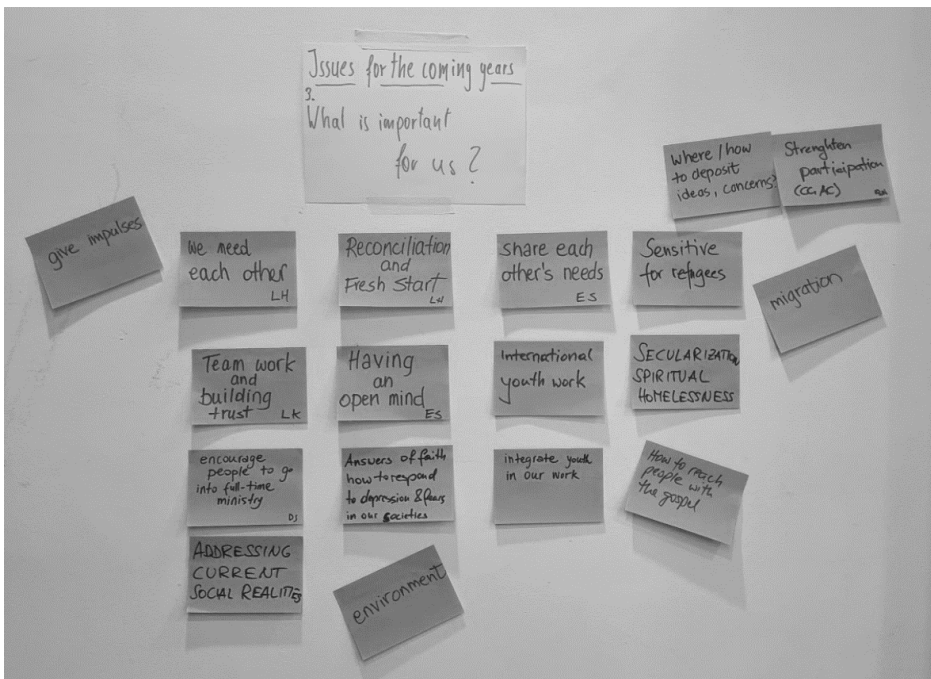 Issues for the coming years
3.
What is important
for us?
where / how
to deposit
ideas, concerns?
Strenghten
participation
(CC, AC)
give impulses
We need
each other
LH
Reconciliation
and
Fresh Start
LH
share each
other's needs
ES
Sensitive
for refugees
migration
Team work
and
building
trust
LK
Having
an
open mind
ES
International
youth work
SECULARIZATION
SPIRITUAL
HOMELESSNESS
encourage
people to go
into full-time
ministry
DJ
Answers of faith
how to respond
to depression & fears
in our societies
integrate youth
in our work
How to reach
people with
the gospel
ADDRESSING
CURRENT
SOCIAL REALITIES
ES
environment